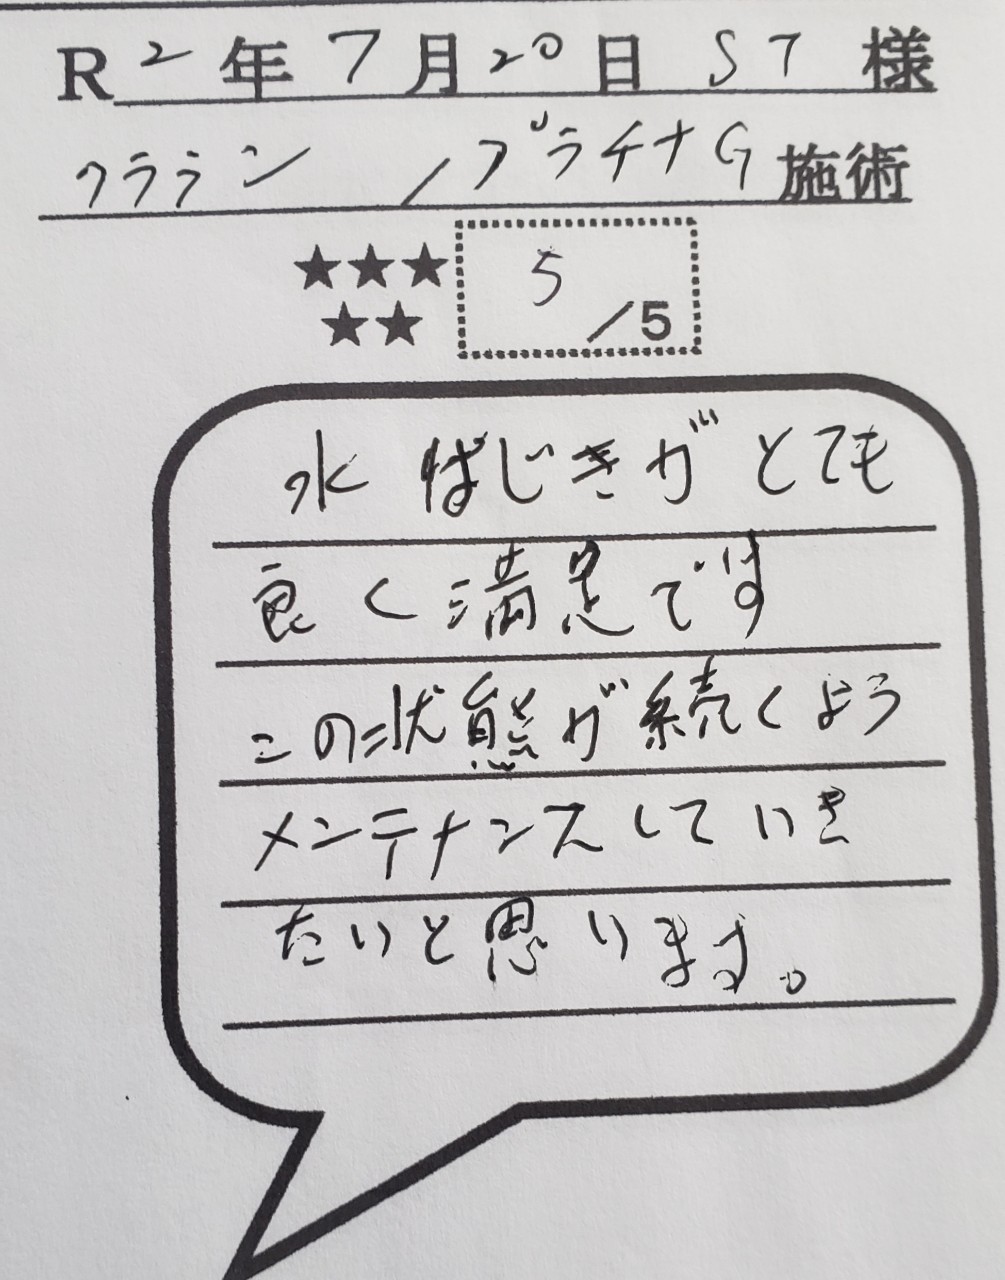 R2年7月20日 ST 様
クララン /プラチナG 施術
★★★ 5
★★ /5
水はじきがとても
良く満足です
この状態が続くよう
メンテナンスしていき
たいと思います。